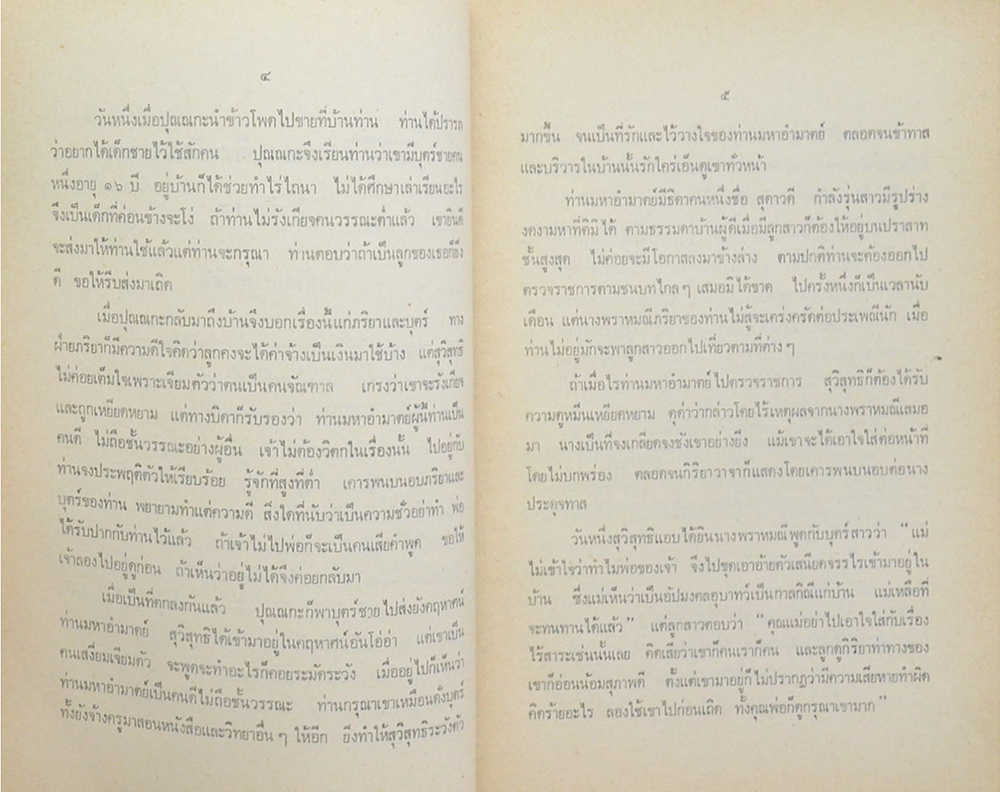 ๔
วันหนึ่งเมื่อปุณณกะนำข้าวโพดไปขายที่บ้านท่าน ท่านได้ปรารภ
ว่าอยากได้เด็กชายไว้ใช้สักคน ปุณณกะจึงเรียนท่านว่าเขามีบุตร์ชายคน
หนึ่งอายุ ๑๖ ปี อยู่บ้านก็ได้ช่วยทำไร่ไถนา ไม่ได้ศึกษาเล่าเรียนอะไร
จึงเป็นเด็กที่ค่อนข้างจะโง่ ถ้าท่านไม่รังเกียจคนวรรณะต่ำแล้ว เขายินดี
จะส่งมาให้ท่านใช้แล้วแต่ท่านจะกรุณา ท่านตอบว่าถ้าเป็นลูกของเธอก็ยิ่ง
ดี ขอให้รีบส่งมาเถิด
เมื่อปุณณกะกลับมาถึงบ้านจึงบอกเรื่องนี้แก่ภริยาและบุตร์ ทาง
ฝ่ายภริยาก็มีความดีใจคิดว่าลูกคงจะได้ค่าจ้างเป็นเงินมาใช้บ้าง แต่สุวิสุทธิ
ไม่ค่อยเต็มใจเพราะเจียมตัวว่าตนเป็นคนจัณฑาล เกรงว่าเขาจะรังเกียจ
และถูกเหยียดหยาม แต่ทางบิดาก็รับรองว่า ท่านมหาอำมาตย์ผู้นี้ท่านเป็น
คนดี ไม่ถือชั้นวรรณะอย่างผู้อื่น เจ้าไม่ต้องวิตกในเรื่องนั้น ไปอยู่กับ
ท่านจงประพฤติตัวให้เรียบร้อย รู้จักที่สูงที่ต่ำ เคารพนบนอบภริยาและ
บุตร์ของท่าน พยายามทำแต่ความดี สิ่งใดที่นับว่าเป็นความชั่วอย่าทำ พ่อ
ได้รับปากกับท่านไว้แล้ว ถ้าเจ้าไม่ไปพ่อก็จะเป็นคนเสียคำพูด ขอให้
เจ้าลองไปอยู่ดูก่อน ถ้าเห็นว่าอยู่ไม่ได้จึงค่อยกลับมา
เมื่อเป็นที่ตกลงกันแล้ว ปุณณกะก็พาบุตร์ชายไปส่งยังคฤหาศน์
ท่านมหาอำมาตย์ สุวิสุทธิได้เข้ามาอยู่ในคฤหาศน์อันโอ่อ่า แต่เขาเป็น
คนเสงี่ยมเจียมตัว จะพูดจะทำอะไรก็คอยระมัดระวัง เมื่ออยู่ไปก็เห็นว่า
ท่านมหาอำมาตย์เป็นคนดีไม่ถือชั้นวรรณะ ท่านกรุณาเขาเหมือนดังบุตร์
ทั้งยังจ้างครูมาสอนหนังสือและวิทยาอื่น ๆ ให้อีก ยิ่งทำให้สุวิสุทธิระวังตัว
๕
มากขึ้น จนเป็นที่รักและไว้วางใจของท่านมหาอำมาตย์ ตลอดจนข้าทาส
และบริวารในบ้านนั้นรักใคร่เอ็นดูเขาทั่วหน้า
ท่านมหาอำมาตย์มีธิดาคนหนึ่งชื่อ สุดาวดี กำลังรุ่นสาวมีรูปร่าง
งดงามหาที่ติมิได้ ตามธรรมดาบ้านผู้ดีเมื่อมีลูกสาวก็ต้องให้อยู่บนปราสาท
ชั้นสูงสุด ไม่ค่อยจะมีโอกาสลงมาข้างล่าง ตามปกติท่านจะต้องออกไป
ตรวจราชการตามชนบทไกล ๆ เสมอมิได้ขาด ไปครั้งหนึ่งก็เป็นเวลานับ
เดือน แต่นางพราหมณีภริยาของท่านไม่สู้จะเคร่งครัดต่อประเพณีนัก เมื่อ
ท่านไม่อยู่มักจะพาลูกสาวออกไปเที่ยวตามที่ต่าง ๆ
ถ้าเมื่อไรท่านมหาอำมาตย์ไปตรวจราชการ สุวิสุทธิก็ต้องได้รับ
ความดูหมิ่นเหยียดหยาม ดุด่าว่ากล่าวโดยไร้เหตุผลจากนางพราหมณีเสมอ
มา นางเป็นที่จงเกลียดจงชังเขาอย่างยิ่ง แม้เขาจะได้เอาใจใส่ต่อหน้าที่
โดยไม่บกพร่อง ตลอดจนกิริยาวาจาก็แสดงโดยเคารพนบนอบต่อนาง
ประดุจทาส
วันหนึ่งสุวิสุทธิแอบได้ยินนางพราหมณีพูดกับบุตร์สาวว่า “แม่
ไม่เข้าใจว่าทำไมพ่อของเจ้า จึงไปขุดเอาอ้ายตัวเสนียดจรรไรเข้ามาอยู่ใน
บ้าน ซึ่งแม่เห็นว่าเป็นอัปมงคลอุบาทว์เป็นกาลกิณีแก่บ้าน แม่เหลือที่
จะทนทานได้แล้ว” แต่ลูกสาวตอบว่า “คุณแม่อย่าไปเอาใจใส่กับเรื่อง
ไร้สาระเช่นนั้นเลย คิดเสียว่าเขาก็คนเราก็คน และลูกดูกิริยาท่าทางของ
เขาก็อ่อนน้อมสุภาพดี ตั้งแต่เขามาอยู่ก็ไม่ปรากฏว่ามีความเสียหายทำผิด
คิดร้ายอะไร ลองใช้เขาไปก่อนเถิด ทั้งคุณพ่อก็ดูกรุณาเขามาก”